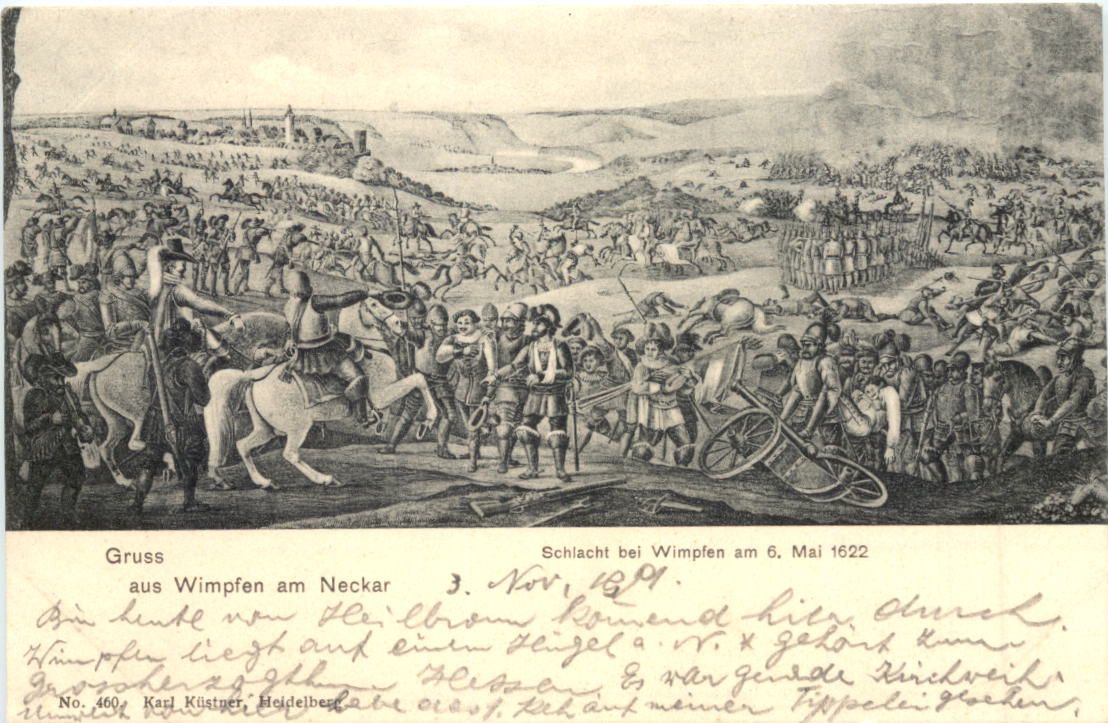 Gruss
Schlacht bei Wimpfen am 6. Mai 1622
aus Wimpfen am Neckar
3. Nov.
Bin heute von Heilbronn komend hier durch.
Wimpfen liegt auf einem Hügel a. N. & gehört zum
Grossherzogthum Hessen. Es war gerade Kirchweih.
No. 460. Karl Küstner, Heidelberg.
Unweit von hier habe auf meiner Tippelei gesehen.